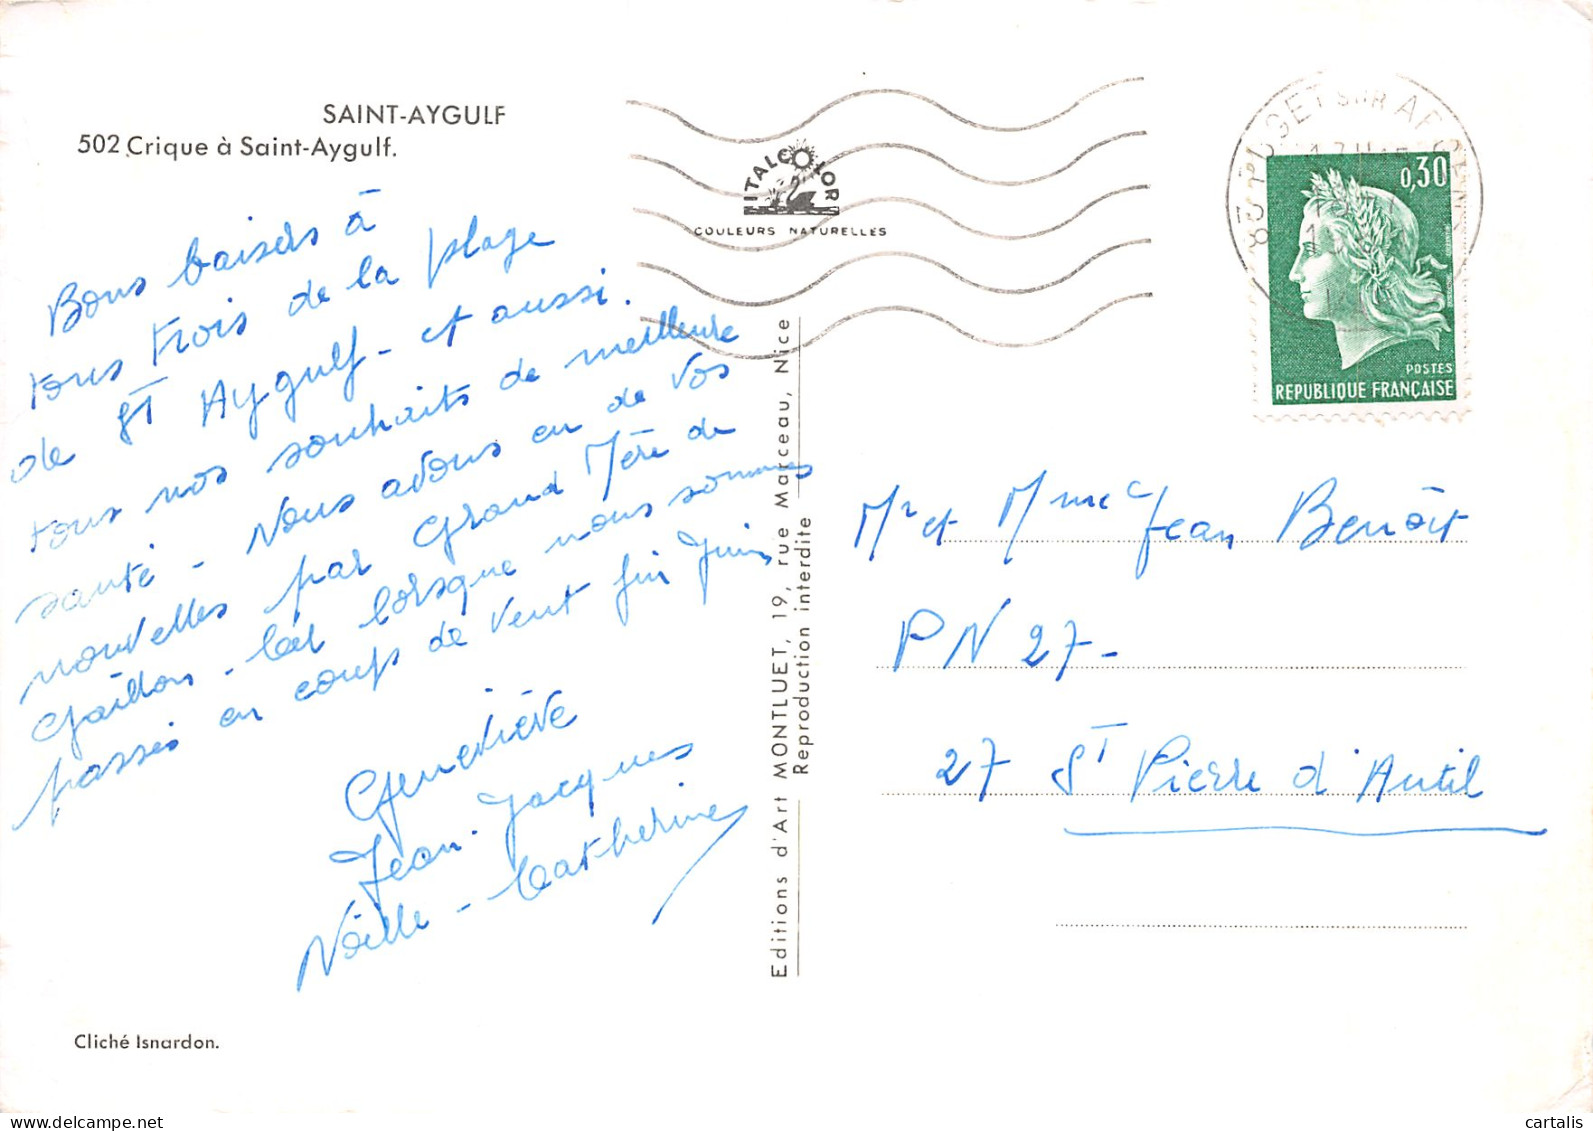 SAINT-AYGULF
502 Crique à Saint-Aygulf.
Bons baisers à
tous trois de la plage
de St Aygulf - et aussi.
tous nos souhaits de meilleure
santé - Nous avons eu de vos
nouvelles par Grand Mère de
Gaillon - Car lorsque nous sommes
passés en coup de vent fin Juin
Geneviève
Jean-Jacques
Noëlle - Catherine
Cliché Isnardon.
ITALCOLOR
COULEURS NATURELLES
Editions d'Art MONTLUET, 19, rue Marceau, Nice
Reproduction interdite
83 PUGET SUR ARGENS
0,30
POSTES
REPUBLIQUE FRANÇAISE
Mr et Mme Jean Benoît
PN 27-
27 St Pierre d'Autil
delcampe.net
cartalis